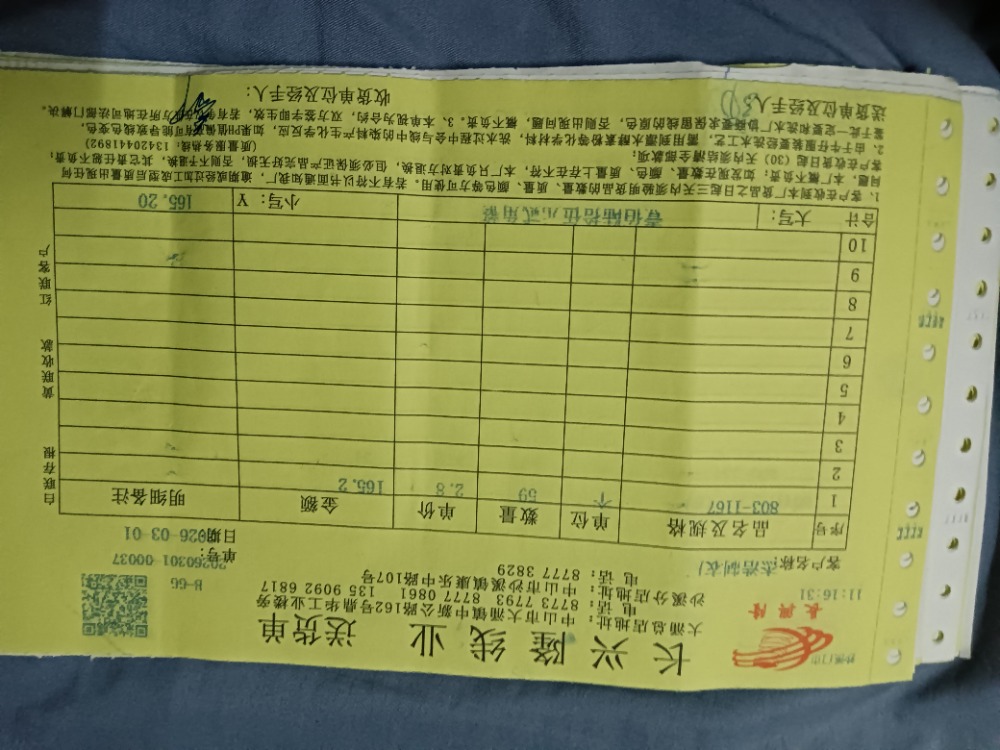 长兴隆线业 送货单
长兴隆
大涌总店地址：中山市大涌镇中新公路162号鼎华工业楼旁
电话：8773 7793 8777 0861 135 9092 6817
沙溪分店地址：中山市沙溪镇康乐中路107号
电话：8777 3829
11:16:31
H-66
客户名称：杰浩制衣厂
单号：20260301-00037
日期：2026-03-01
序号 品名及规格 单位 数量 单价 金额 明细备注
1 803-1167 个 59 2.8 165.2
2
3
4
5
6
7
8
9
10
合计 大写： 壹佰陆拾伍元贰角整 小写：￥ 165.20
白联存根 黄联收款 红联客户
1、客户在收到本厂货品之日起三天内须验明货品的数量、质量、颜色等方可使用。若有不符以书面通知我厂，逾期或经过加工成型后质量出现任何
问题，本厂概不负责；如发现在数量、颜色、质量上存在不符，本厂只负责对方退换，但必须保证产品完好无损，否则不予退换，其它责任超不负责；
客户在收货日起（30）天内结清全部款项；
（质量服务热线：13420441892）
2、由于牛仔服装要经洗水工艺，需用到漂水酵素粉等化学材料，洗水过程中会与线中的染料产生化学反应，如果PH值偏
有可能导致线色变，
鉴于此一定要和洗水厂协商要求保留线的原色，否则出现问题，概不负责。3、本单视为合约，双方签字即生效，若有
方所在地司法部门解决。
送货单位及经手人： 收货单位及经手人：